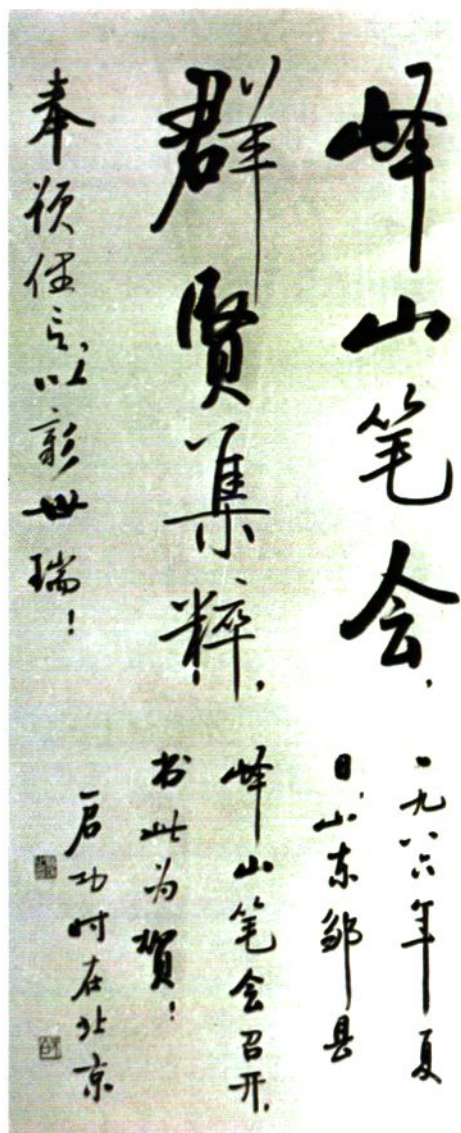 峄山笔会,
群賢集粹,
奉颂佳言,以彰世瑞!
一九八六年夏
日,山东邹县
峄山笔会召开,
书此为賀!
启功时在北京